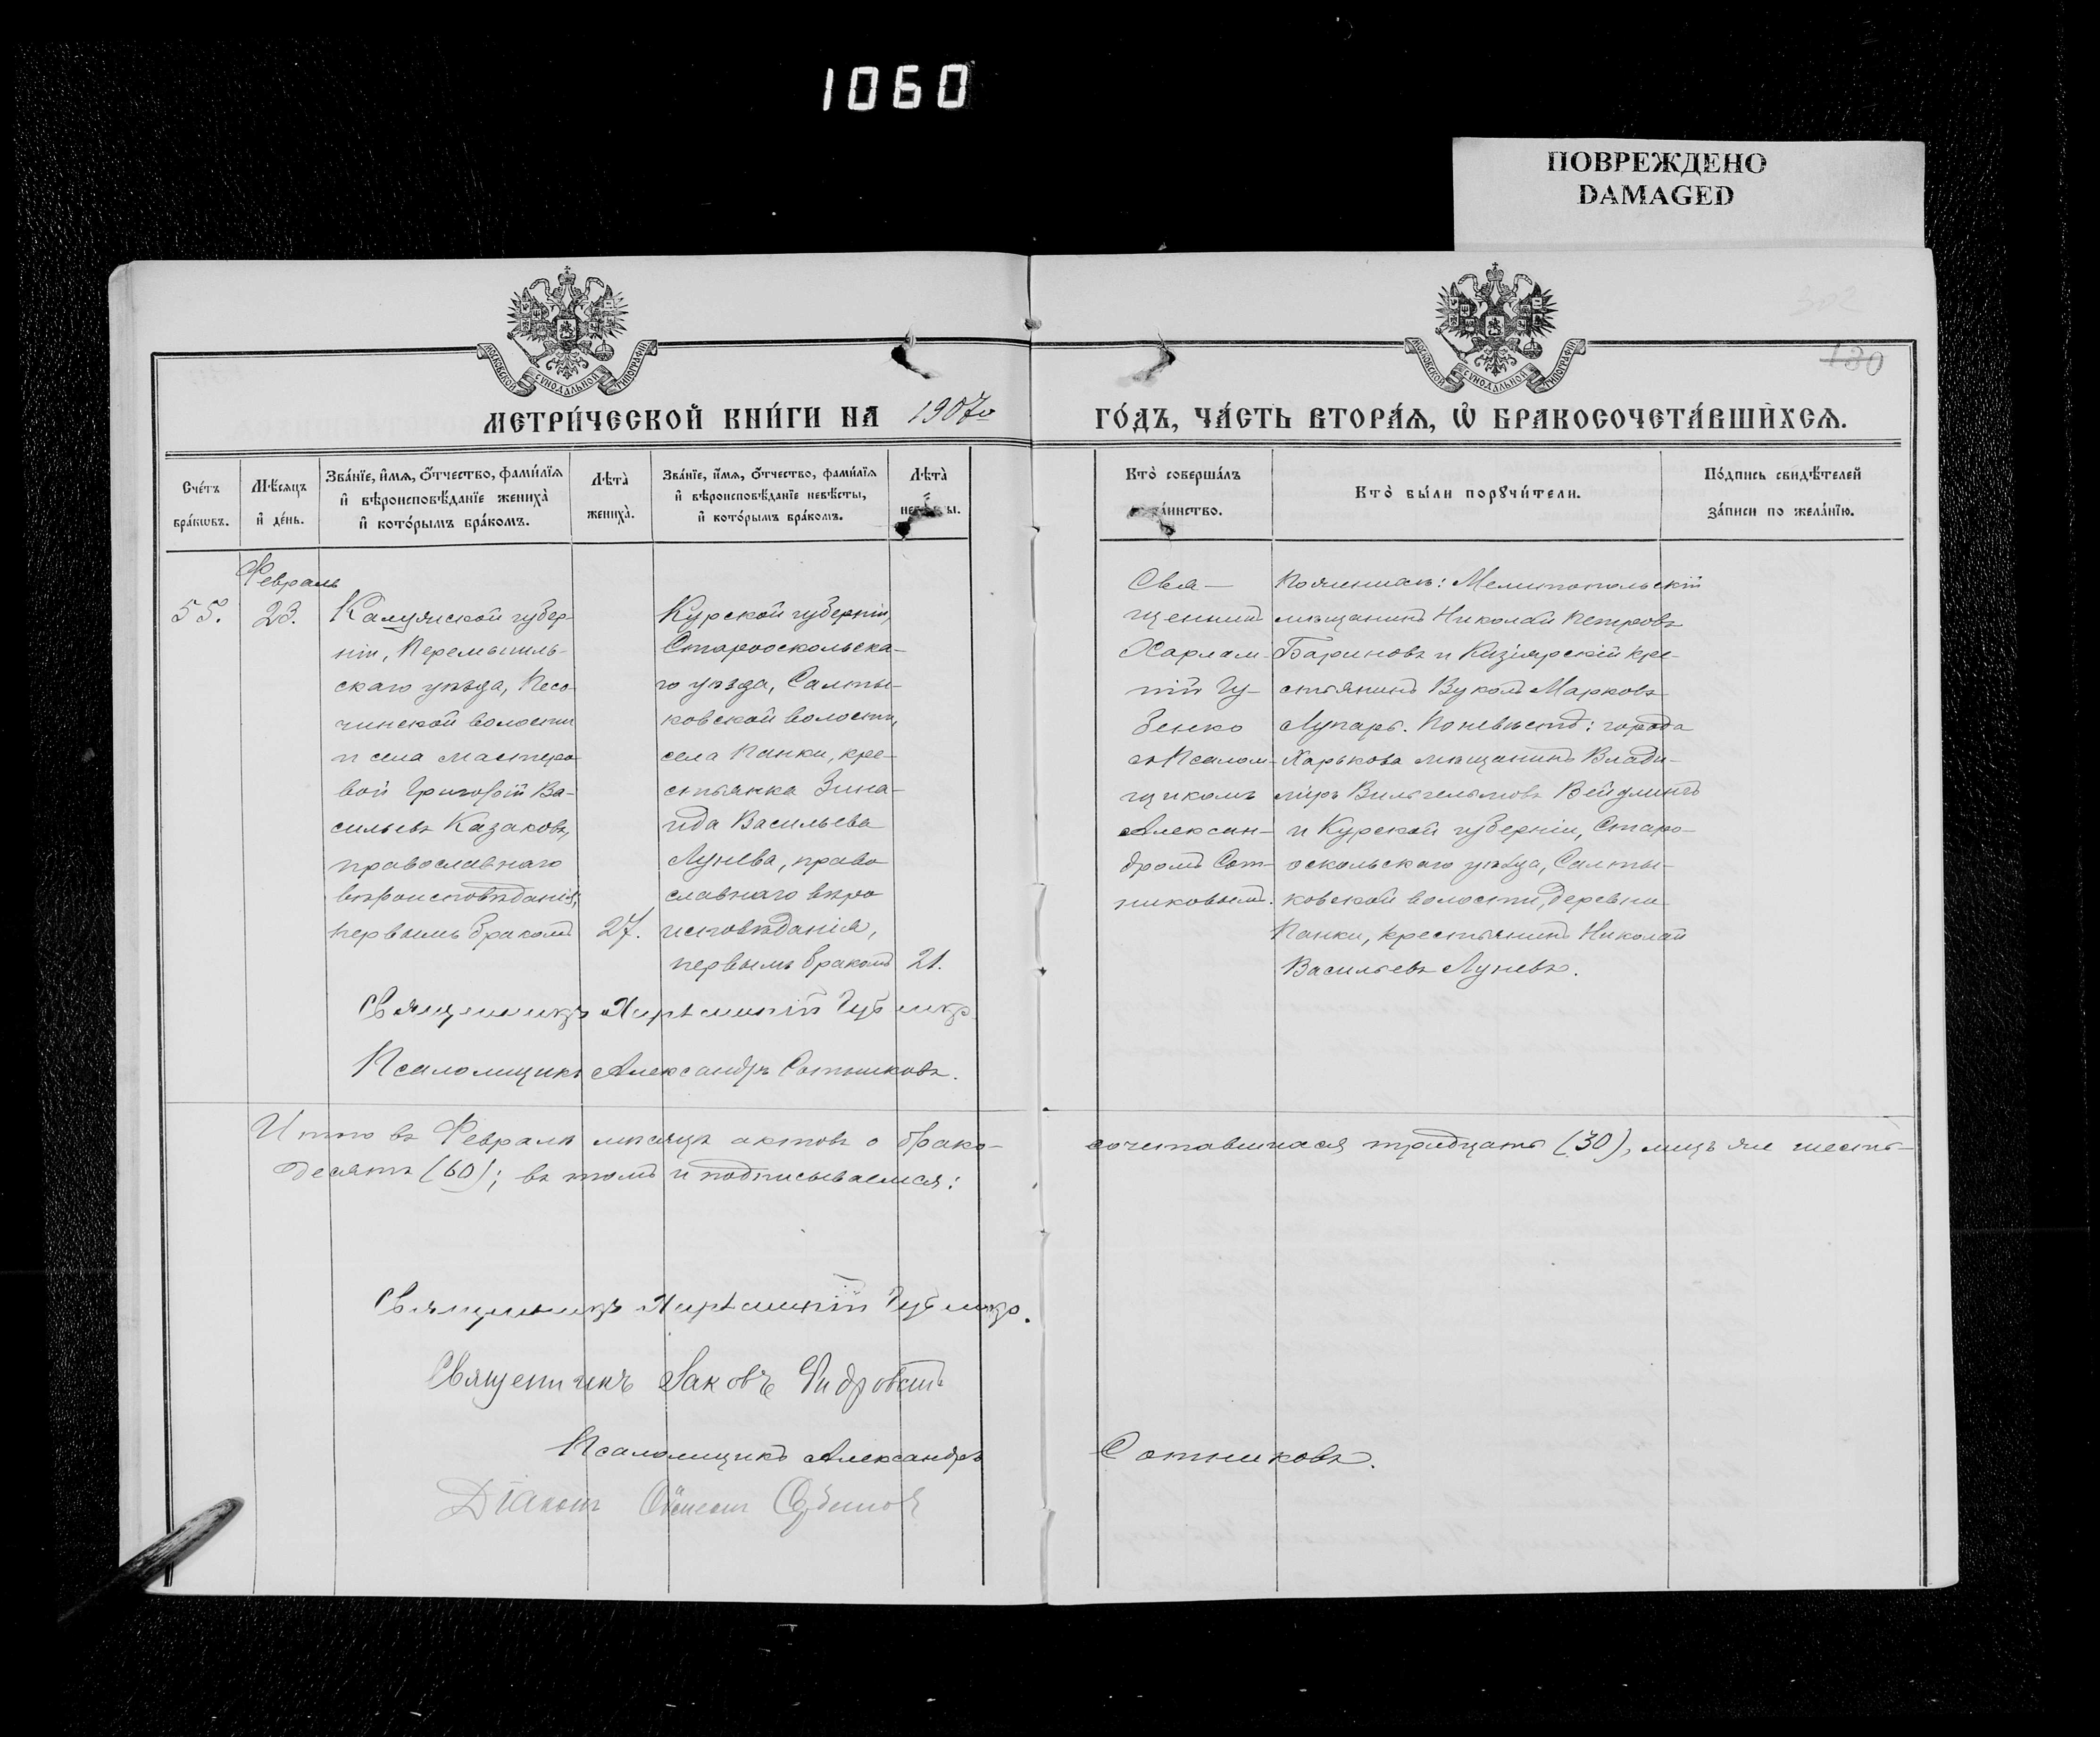 1060
ПОВРЕЖДЕНО
DAMAGED
302
130
МОСКОВСКОЙ СѴНОДАЛЬНОЙ ТИПОГРАФІИ
МОСКОВСКОЙ СѴНОДАЛЬНОЙ ТИПОГРАФІИ
МЕТРИ́ЧЕСКОЙ КНИ́ГИ НА 1907 го
ГО́ДЪ, ЧА́СТЬ ВТОРА́Ѧ, Ѡ БРАКОСОЧЕТА́ВШИХСѦ.
Сче́тъ бра́кѡвъ.
Мѣ́сяцъ и де́нь.
Зва́нїе, и́мѧ, ѻ́тчество, фами́лїѧ и вѣроисповѣ́данїе жениха̀ и кото́рымъ бра́комъ.
Лѣта̀ жениха̀.
Зва́нїе, и́мѧ, ѻ́тчество, фами́лїѧ и вѣроисповѣ́данїе невѣ́сты, и кото́рымъ бра́комъ.
Лѣта̀ ы.
Кто̀ соверша́лъ та́инство.
Кто̀ бы́ли порꙋчи́тели.
По́дпись свидѣ́телей за́писи по жела́нїю.
Февраль
55.
23.
Калужской губер-
ніи, Перемышль-
скаго уѣзда, Песо-
чинской волости
и села мастеро-
вой Григорій Ва-
сильевъ Казаковъ,
православнаго
вѣроисповѣданія,
первымъ бракомъ
27.
Курской губерніи,
Старооскольска-
го уѣзда, Салты-
ковской волости,
села Панки, кре-
стьянка Зина-
ида Васильева
Лунева, право
славнаго вѣро
исповѣданія,
первымъ бракомъ
21.
Свя-
щенникъ
Харлам-
пій Гу-
бенко
съ Псалом-
щикомъ
Алексан-
дромъ Сот-
никовымъ.
По женихѣ: Мелитопольскій
мѣщанинъ Николай Петровъ
Бариновъ и Кизіярскій кре-
стьянинъ Вуколъ Марковъ
Лупарь. По невѣстѣ: города
Харькова мѣщанинъ Влади-
міръ Вильгельмовъ Вейдлингъ
и Курской губерніи, Старо-
оскольскаго уѣзда, Салты-
ковской волости, деревни
Панки, крестьянинъ Николай
Васильевъ Луневъ.
Священникъ Харлампій Губенко
Псаломщикъ Александръ Сотниковъ.
Итого въ Февралѣ мѣсяцѣ актовъ о брако-
сочетавшихся тридцать (30), лицъ же шесть-
десятъ (60); въ томъ и подписываемся:
Священникъ Харлампій Губенко.
Священникъ Іаковъ
Псаломщикъ Александръ Сотниковъ.
Діаконъ